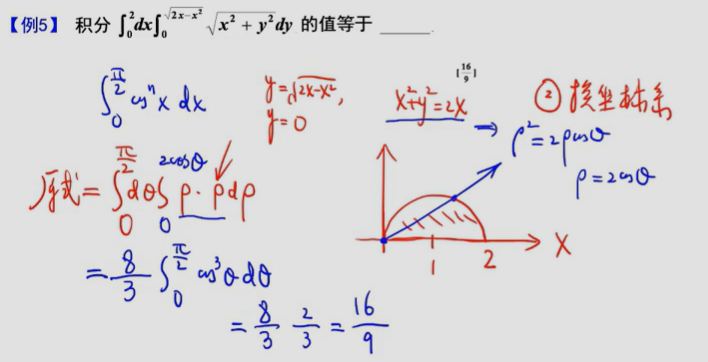 【例5】 积分 ∫₀²dx∫₀^√(2x−x²) √(x²+y²)dy 的值等于 _____.
[16/9]
∫₀^(π/2) cosⁿx dx
y=√(2x−x²),
y=0
x²+y²=2x
② 极坐标系
⇒ ρ²=2ρcosθ
ρ=2cosθ
原式=∫₀^(π/2) dθ∫₀^(2cosθ) ρ·ρdρ
=8/3 ∫₀^(π/2) cos³θdθ
=8/3 2/3=16/9
1 2 X